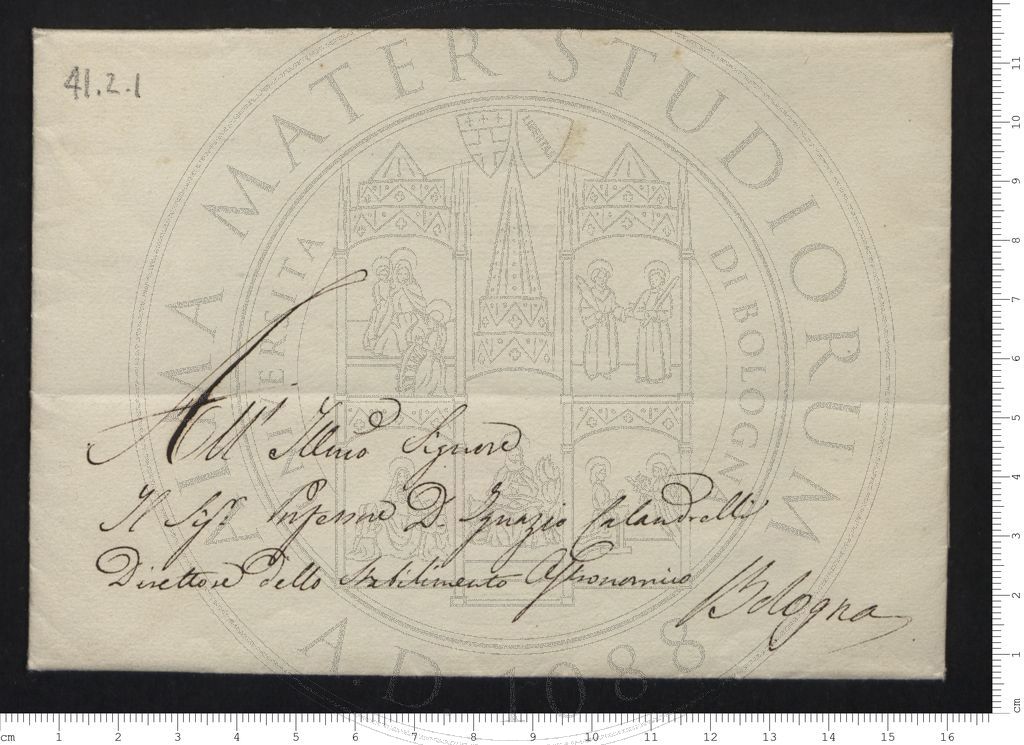 41.2.1
All' Illmo Signore
Il Sigr. Professore D. Ignazio Calandrelli
Direttore dello Stabilimento Astronomico
Bologna
ALMA MATER STUDIORUM
UNIVERSITÀ DI BOLOGNA
LIBERTAS
A.D. 1088
cm 1 2 3 4 5 6 7 8 9 10 11 12 13 14 15 16
11
10
9
8
7
6
5
4
3
2
1
cm